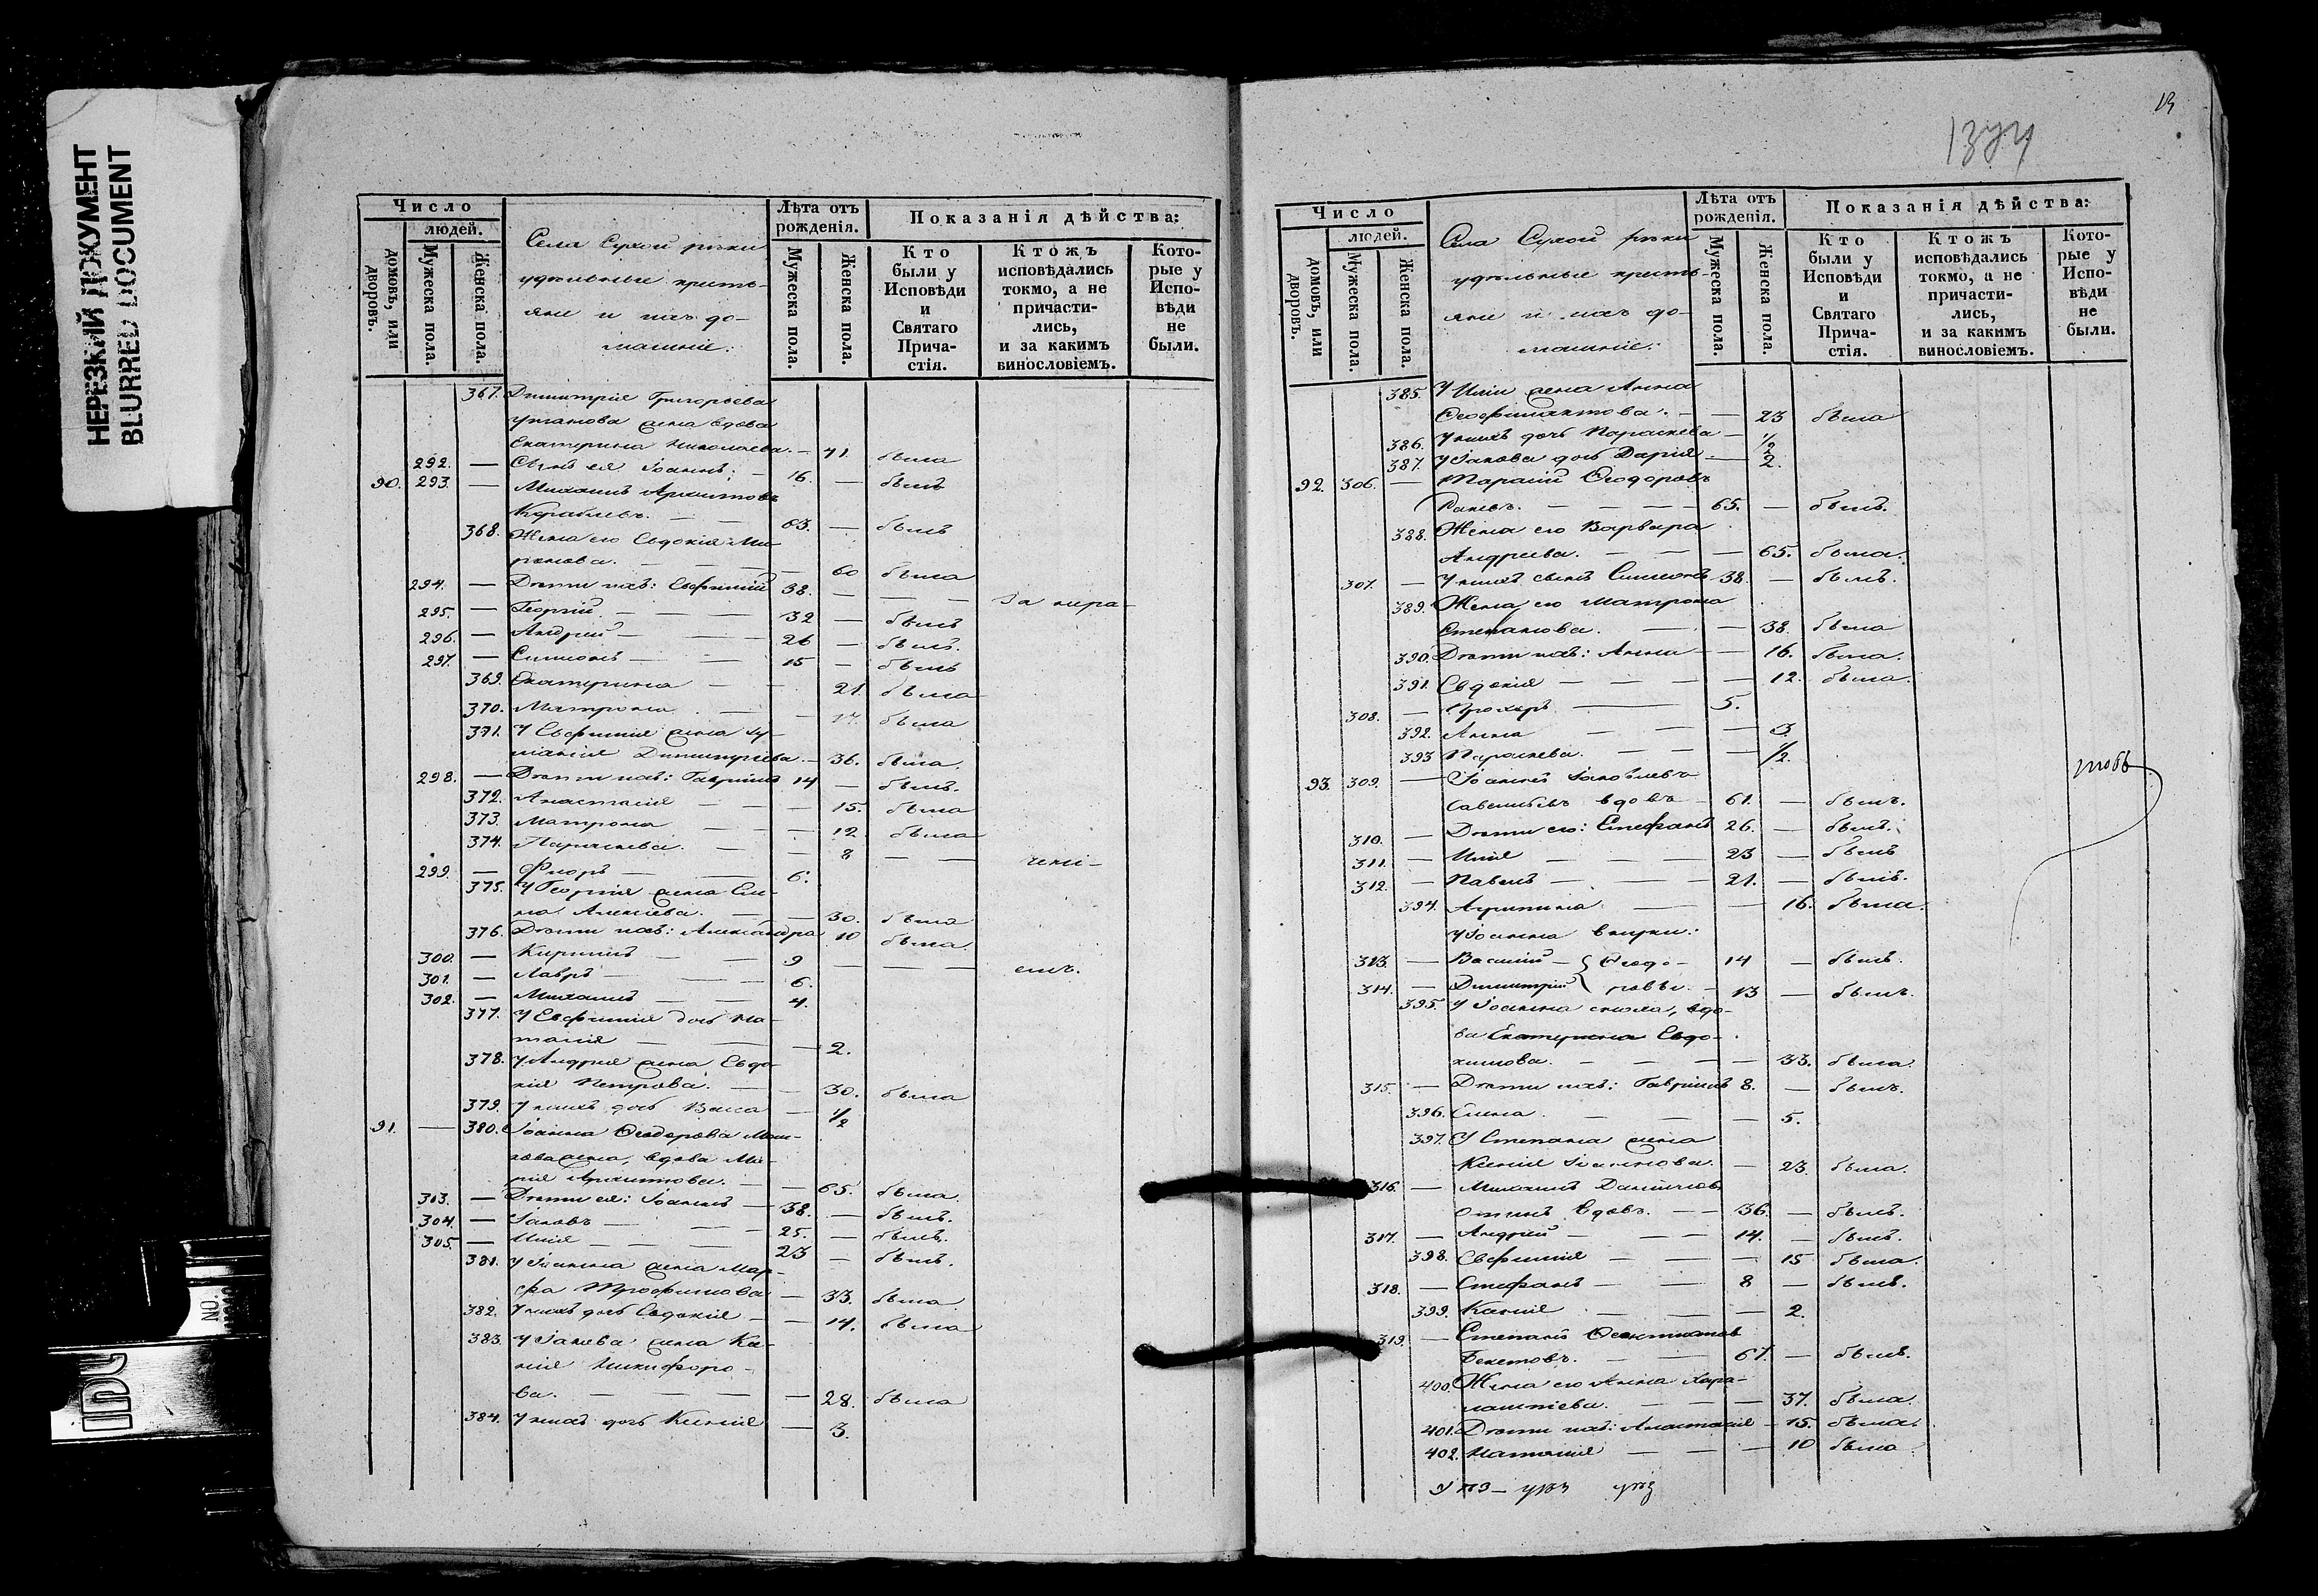 НЕРЕЗКИЙ ДОКУМЕНТ
BLURRED DOCUMENT
Число
людей.
домовъ, или дворовъ.
Мужеска пола.
Женска пола.
Села Сухой рѣки
удѣльные кресть-
яне и ихъ до-
машніе:
Лѣта отъ рожденія.
Мужеска пола.
Женска пола.
Показанія дѣйства:
Кто были у Исповѣди и Святаго Прича-стія.
Ктожъ исповѣдались токмо, а не причасти-лись, и за какимъ винословіемъ.
Кото-рые у Испо-вѣди не были.
367. Димитрія Григорьева
жена вдова
Екатерина Николаева. — 41. была
292. — Сынъ ея Іоаннъ: — 16. — былъ
90. 293. — Михаилъ Архиповъ
Кораблевъ. — — 63. — былъ
368. Жена его Евдокія Ми-
ронова. — — — 60 была
294. — Дѣти ихъ: Евфимій 38. — — — За нера-
295. — Георгій — — 32 — былъ
296. — Андрей — — 26 — былъ.
297. — Симеонъ — — 15 — былъ
369. Екатерина — — 21. была
370. Матрона — — 17. была
371. У Евфимія жена Ху-
Димитріева. — 36. была.
298. — Дѣти ихъ: Гавріилъ 14 — былъ.
372. Анастасія — — — 15. была
373. Матрона — — 12. была
374. Параскева. — — 8 — — чені-
299. — Флоръ — — 6.
375. У Георгія жена Еле-
на Алексіева. — — 30. была
376. Дѣти ихъ: Александра 10 была.
300. — Кириллъ — — 9 — — — емъ.
301. — Лавръ — — 6.
302. — Михаилъ — — 4.
377. У Евфимія дочь На-
талія — — — 2.
378. У Андрея жена Евдо-
кія Петрова. — — 30. была
379. У нихъ дочь Васса — 1/2
91. — 380. Іоанна Ѳеодорова
жена, вдова Ма-
рія Архипова. — — 65. была.
303. — Дѣти ея: Іоаннъ — 38. — былъ.
304. — Іаковъ — — 25. — былъ.
305. — Илія — — — 23 — былъ.
381. У Іоанна жена Мар-
фа Трофимова — 33. была.
382. У нихъ дочь Евдокія — — 14. была
383. У Іакова жена Ксе-
нія Никифоро-
ва. — — — — 28. была
384. У нихъ дочь Ксенія — 3.
13
Число
людей.
домовъ, или дворовъ.
Мужеска пола.
Женска пола.
Села Сухой рѣки
удѣльные кресть-
яне и ихъ до-
машніе:
Лѣта отъ рожденія.
Мужеска пола.
Женска пола.
Показанія дѣйства:
Кто были у Исповѣди и Святаго Прича-стія.
Ктожъ исповѣдались токмо, а не причасти-лись, и за какимъ винословіемъ.
Кото-рые у Испо-вѣди не были.
385. У Иліи жена Анна
Ѳеофилактова. — — 23 была
386. У нихъ дочь Параскева — 1/2
387. У Іакова дочь Дарія — 2.
92. 306. — Тарасій Ѳеодоровъ
— — — 65. — былъ.
388. Жена его Варвара
Андреева. — — — 65. была.
307. — У нихъ сынъ Симеонъ 38. — былъ.
389. Жена его Матрона
Степанова. — — 38. была
390. Дѣти ихъ: Анна — — 16. была.
391. Евдокія — — — — 12. была.
308. — Прохоръ — 5.
392. Анна — — — 3.
393 Параскева. — — — 1/2.
93. 309. — Іоаннъ Іаковлевъ
Савельевъ вдовъ — 61. — былъ.
310. — Дѣти его: Стефанъ 26. — былъ.
311. — Илія — — — 23 — былъ
312. — Павелъ — — — 21. — былъ.
394. Агрипина — — 16. была.
У Іоанна внуки:
313. — Василій — } Ѳедо- 14 — былъ.
314. — Димитрій } ровы. — 13 — былъ.
395. У Іоанна сноха, вдо-
ва Екатерина Евдо-
кимова. — — — — 33. была.
315. — Дѣти ихъ: Гавріилъ 8. — былъ.
396. Елена. — — — 5.
397. У Стефана жена
Ксенія Іоаннова. — 23 была.
316. — Михаилъ Даниловъ
вдовъ. — — 36. — былъ.
317. — Андрей — — — 14. — былъ.
398. Евфимія — — — 15 была.
318. — Стефанъ — — 8 — былъ.
399. Ксенія — — — 2.
319. — Степанъ
Бекетовъ. — — 67. — былъ.
400. Жена его Анна Хара-
лампіева. — — — 37. была.
401. Дѣти ихъ: Анастасія — 15. была.
402. Наталія — — — 10 была.